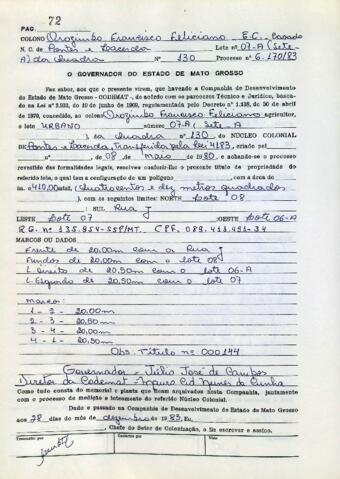 72
PAG.
COLONO Orozimbo Francisco Feliciano E.C. Casado
N. C. de Pontes e Lacerda Lote nº 07-A (Sete-
A) da Quadra Nº 130 Processo nº G.170/83
O GOVERNADOR DO ESTADO DE MATO GROSSO
Faz saber, aos que o presente virem, que havendo a Companhia de Desenvolvimento
do Estado de Mato Grosso - CODEMAT -, de acordo com os pareceres Técnico e Jurídico, basea-
da na Lei nº 2.933, de 19 de junho de 1969, regulamentada pelo Decreto nº 1.138, de 30 de abril
de 1970, concedido, ao colono Orozimbo Francisco Feliciano agricultor,
o lote URBANO número 07-A (Sete-A
) da Quadra nº 130, DO NÚCLEO COLONIAL
DE Pontes e Lacerda, transferida pela Lei 4183, criado pel
nº , de 08, de Maio de 1980, e achando-se o processo
revestido das formalidades legais, resolveu conferir-lhe o presente título de propriedade do
referido lote, o qual tem a configuração de um polígono com a área de
410,00 (Quatrocentos e dez metros quadrados
), com os seguintes limites: NORTE Lote 08
: SUL Rua J
LESTE Lote 07 : OESTE Lote 06-A
R.G. nº 135.954-SSP/MT. CPF. 089.411.491-34
MARCOS OU DADOS
Frente de 20,00m com a Rua J
Fundos de 20,00m com o lote 08
L. Direito de 20,50m com o lote 06-A
L. Esquerdo de 20,50m com o lote 07
Marco:
1 - 2 - 20,00m
2 - 3 - 20,50m
3 - 4 - 20,00m
4 - 1 - 20,50m
Obs: Título nº 000144
Governador - Júlio José de Campos
Diretor da Codemat - Mauro Cid Nunes da Cunha
Como tudo consta do memorial e planta que ficam arquivados nesta Companhia, juntamente
com o processo de medição e loteamento do referido Núcleo Colonial.
Dado e passado na Companhia de Desenvolvimento do Estado de Mato Grosso
aos 28 dias do mês de dezembro de 1983. Eu,
, Chefe do Setor de Colonização, o fiz escrever e assino.
Transcrito por Conferido por Visto